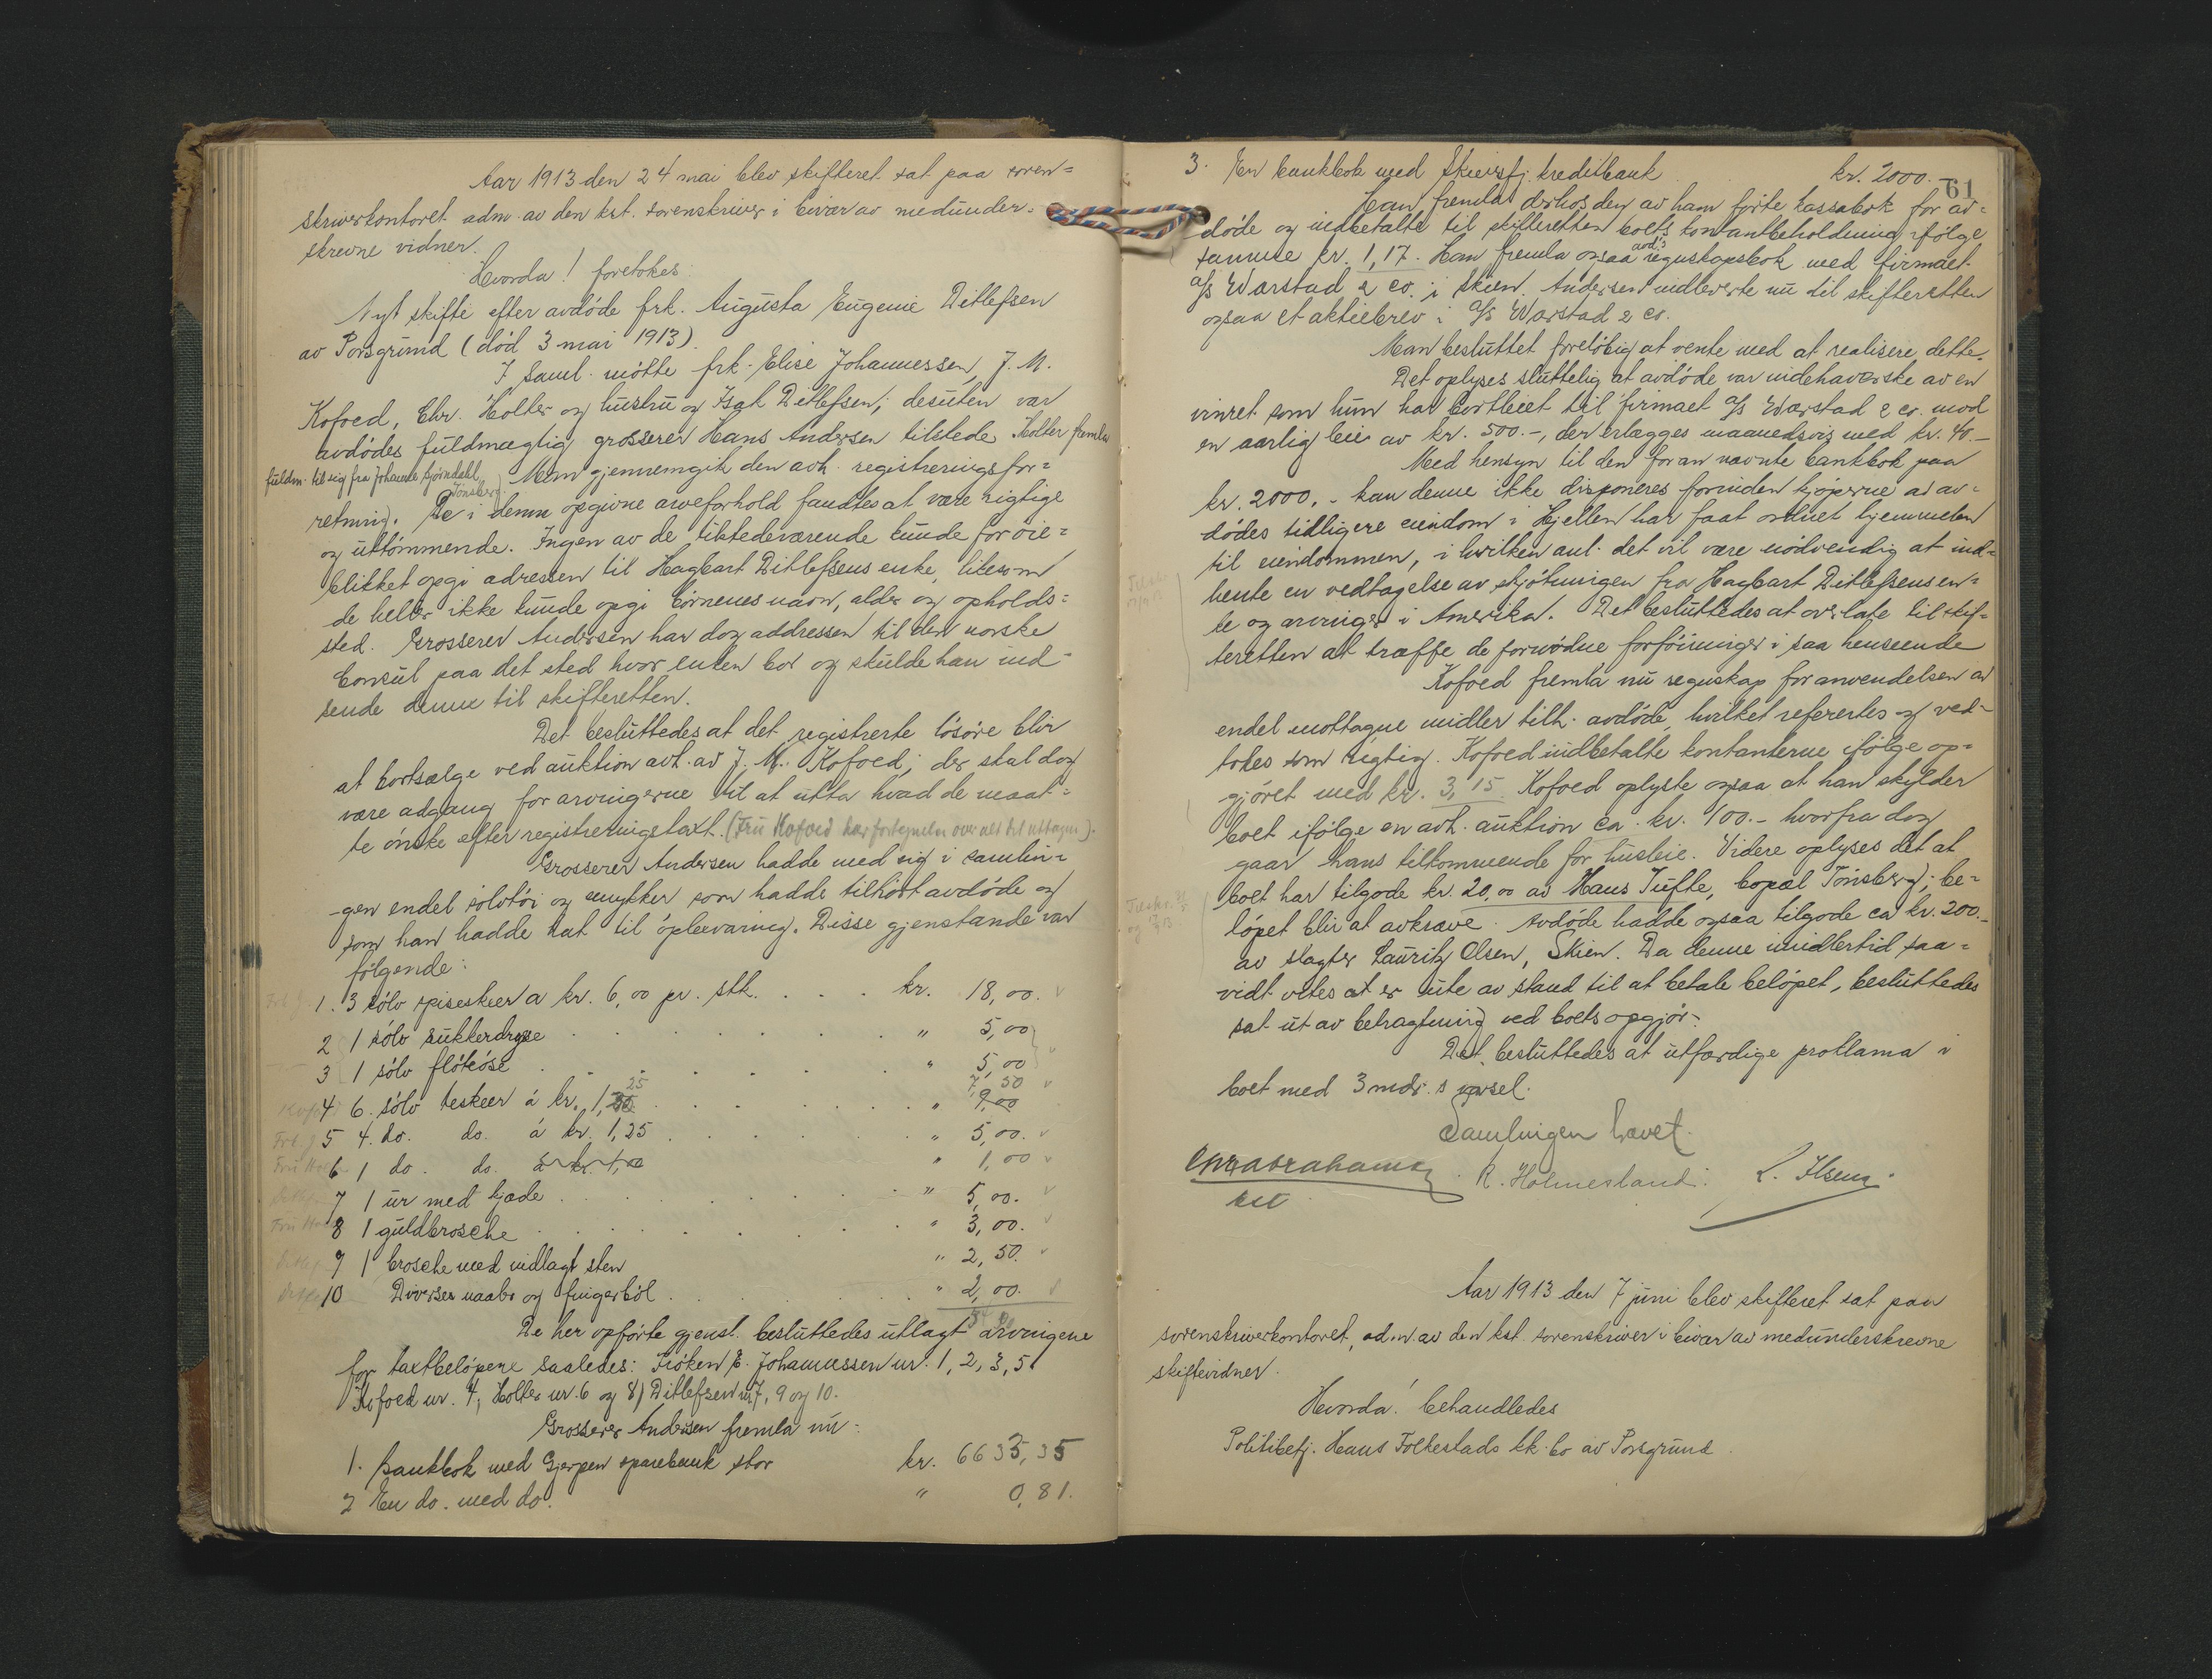 Aar 1913 den 24 mai blev skifteret sat paa soren=
skriverkontoret adm. av den kst. sorenskriver i bivær av medunder-
skrevne vidner.
Hvorda! foretokes:
Nyt skifte efter avdøde frk. Augusta Eugenie Ditlefsen
av Porsgrund (död 3 mai 1913).
I saml. mötte frk. Elise Johannessen, J. M.
Kofoed, Chr. Holter og hustru og Isak Ditlefsen; desuten var
avdödes fuldmægtig grosserer Hans Andersen tilstede. Holter fremla
fuldm. til sig fra Johanne Gjørndahl,
Tönsberg)
Man gjennemgik den avh. registreringsfor=
retning. De i denne opgivne arveforhold fandtes at være rigtige
og uttömmende. Ingen av de tilstedeværende kunde for öie=
blikket opgi adressen til Hagbart Ditlefsens enke, likesom
de heller ikke kunde opgi börnenes navn, alder og opholds=
sted. Grosserer Andersen har dog addressen til den norske
Consul paa det sted hvor enken bor og skulde han ind-
sende denne til skifteretten.
Det besluttedes at det registrerte lösöre blir
at bortsælge ved auktion avh. av J. M. Kofoed; der skal dog
være adgang for arvingerne til at utta hvad de maat=
te önske efter registreringstaxt. (Fru Kofoed har fortegnelse over alt det uttagne).
Grosserer Andersen hadde med sig i samlin=
-gen endel sölvtöi og smykker som hadde tilhört avdöde og
som han hadde hat til opbevaring. Disse gjenstande var
følgende:
1. 3 sölv spiseskeer a kr. 6,00 pr. stk. . . . kr. 18,00.
2 1 sölv sukkerdrysse " 5,00
3 1 sölv flöteöse " 5,00
4 6. sölv teskeer á kr. 1,25 " 7,50 9,00
5 4. do. do. á kr. 1,25 " 5,00.
6 1 do. do. á kr. 1,00 " 1,00
7 1 ur med kjæde " 5,00.
8 1 guldbrosche " 3,00.
9 1 brosche med indlagt sten " 2,50.
10 Diverse naaler og fingerböl " 2,00.
De her opförte gjenst. besluttedes utlagt arvingene
for taxtbelöpene saaledes: Fröken E. Johannessen nr. 1, 2, 3, 5
Kofoed nr. 4, Holter nr. 6 og 8, Ditlefsen nr 7, 9 og 10.
Grosserer Andersen fremla nu:
1. Bankbok med Gjerpen sparebank stor kr. 6635,35
2 En do. med do. " 0,81.
61
3. En bankbok med Skiensfj. kreditbank kr. 2000.-
Han fremla derhos den av ham förte kassabok for av=
döde og indbetalte til skifteretten boets kontantbeholdning ifölge
samme kr. 1,17. Han fremla ogsaa avd's regnskapsbok med firmaet
A/S Wærstad & co. i Skien. Andersen indleverte nu til skifteretten
ogsaa et aktiebrev i A/S Wærstad & co.
Man besluttet foreløbig at vente med at realisere dette.
Det oplyses sluttelig at avdöde var indehaverske av en
vinret som hun har bortleiet til firmaet A/S Wærstad & co. mod
en aarlig leie av kr. 500.-, der erlægges maanedsvis med kr. 40.-
Med hensyn til den foran nævnte bankbok paa
kr. 2000.- kan denne ikke disponeres forinden kjöperne av av-
dödes tidligere eiendom i Hjellen har faat ordnet hjemmelen
til eiendommen, i hvilken anl. det vil være nödvendig at ind=
hente en vedtagelse av skjötningen fra Hagbart Ditlefsens en=
ke og arvinger i Amerika. Det besluttedes at overlate til skif=
teretten at træffe de fornödne forföininger i saa henseende
Kofoed fremla nu regnskap for anvendelsen av
endel mottagne midler tilh. avdöde, hvilket refereres og ved-
tokes som rigtig. Kofoed indbetalte kontanterne ifölge op=
gjöret med kr. 3,15. Kofoed oplyste ogsaa at han skylder
boet ifölge en avh. auktion ca. kr. 100.- hvorfra dog
gaar hans tilkommende for husleie. Videre oplyses det at
boet har tilgode kr. 20,00 av Hans Tufte, bopæl Tönsberg; be=
löpet blir at avkræve. Avdöde hadde ogsaa tilgode ca kr. 200.-
av slagter Lauritz Olsen, Skien. Da denne imidlertid saa=
vidt vites at er ute av stand til at betale belöpet, besluttedes
sat ut av betragtning ved boets opgjör.
Det besluttedes at utfærdige proklama i
boet med 3 mdr.s varsel.
Samlingen hævet.
R. Holmesland.
kst
Aar 1913 den 7 juni blev skifteret sat paa
sorenskriverkontoret, adm av den kst. sorenskriver i bivær av medunderskrevne
skiftevidner.
Hvorda! behandledes
Politibetj. Hans Folkestads kk. bo av Porsgrund.